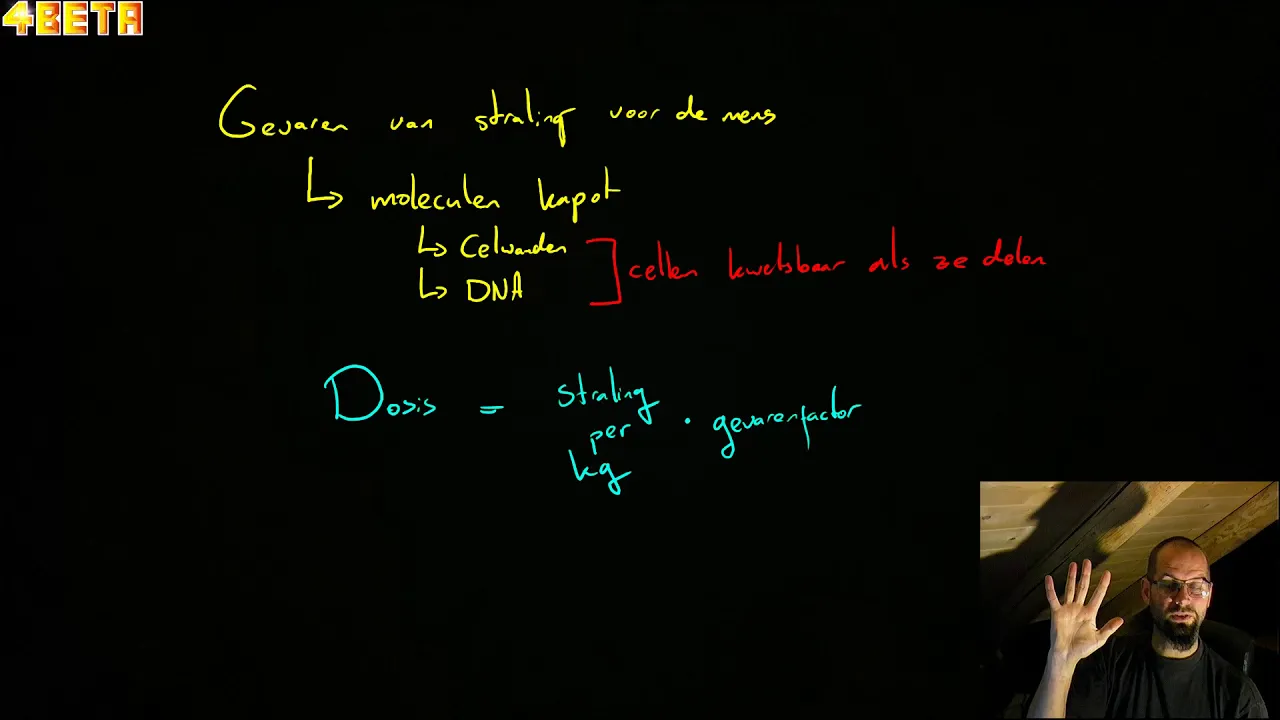 4BETA
Gevaren van straling voor de mens
↳ moleculen kapot
↳ Celwanden
↳ DNA
cellen kwetsbaar als ze delen
Dosis = straling per kg · gevarenfactor